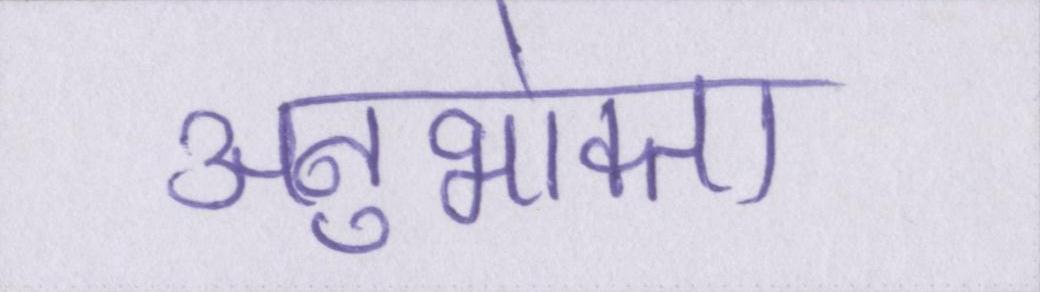 अनुभोक्ता